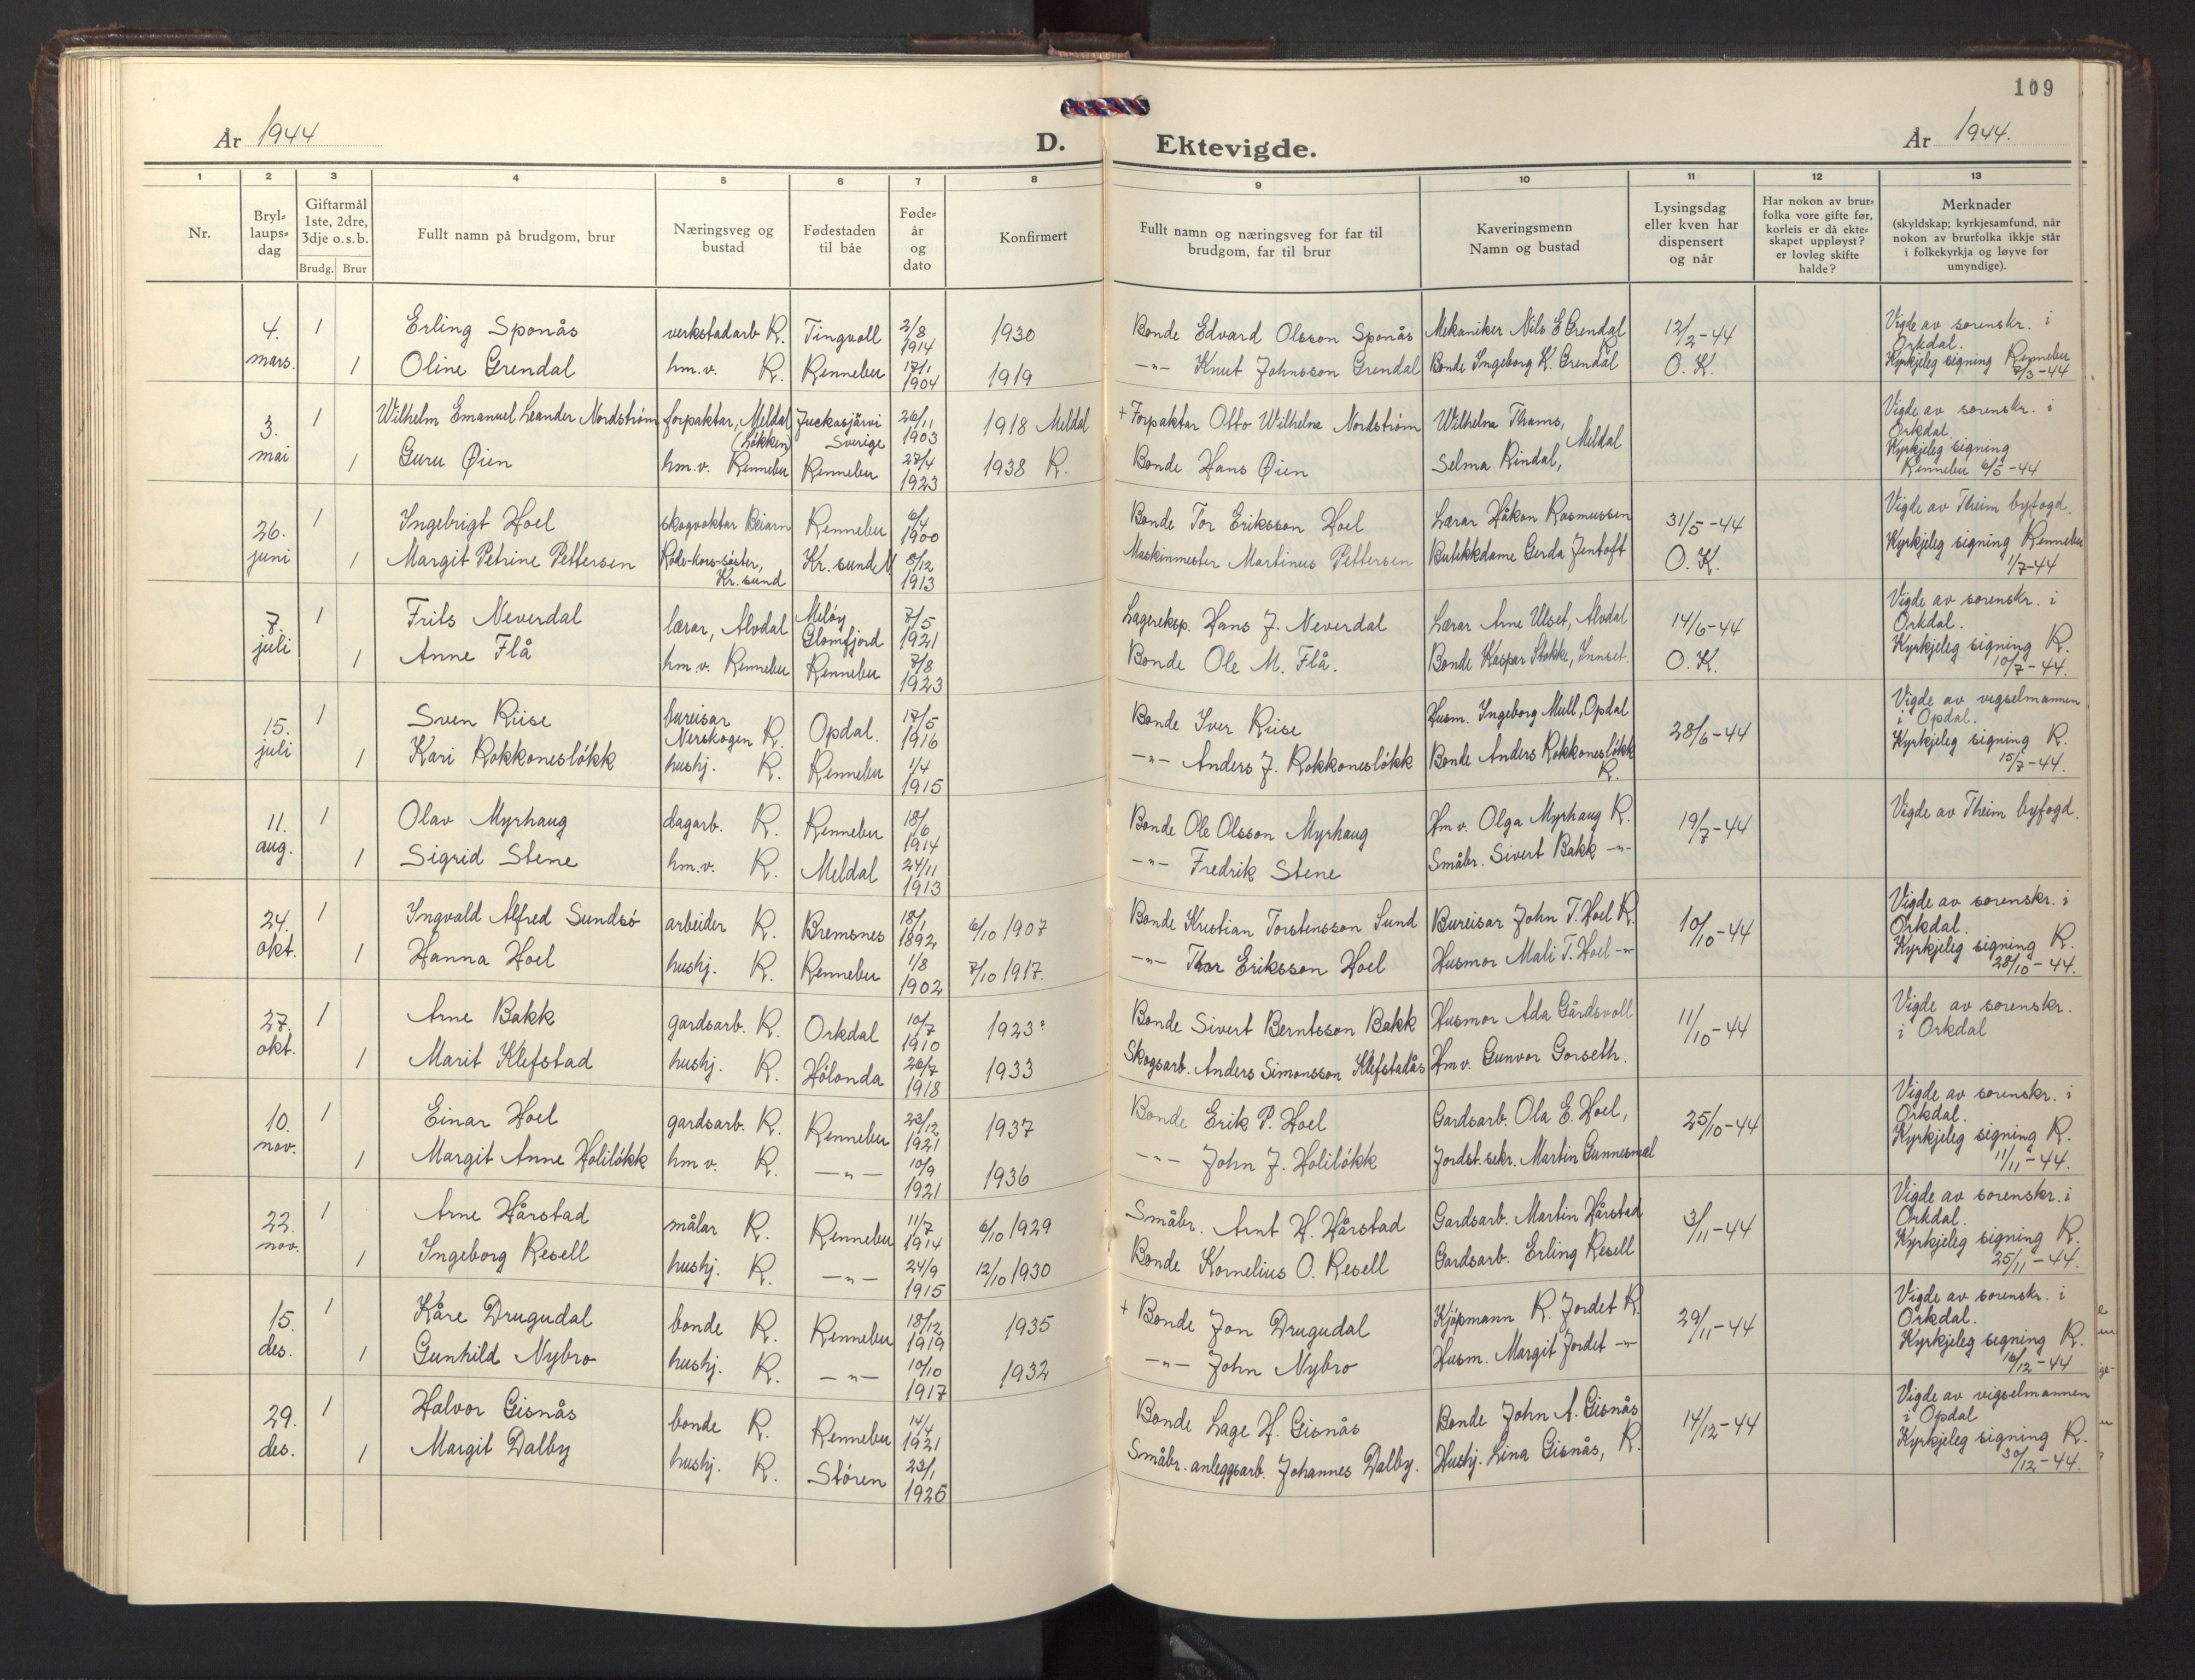 109
År 1944
D. Ektevigde.
År 1944.
1 2 3 4 5 6 7 8 9 10 11 12 13
Nr.
Bryl-laups-dag
Giftarmål 1ste, 2dre, 3dje o.s.b.
Brudg. Brur
Fullt namn på brudgom, brur
Næringsveg og bustad
Fødestaden til båe
Føde-år og dato
Konfirmert
Fullt namn og næringsveg for far til brudgom, far til brur
Kaveringsmenn Namn og bustad
Lysingsdag eller kven har dispensert og når
Har nokon av brur-folka vore gifte før, korleis er då ekte-skapet uppløyst? er lovleg skifte halde?
Merknader (skyldskap; kyrkjesamfund, når nokon av brurfolka ikkje står i folkekyrkja og løyve for umyndige).
4. mars. 1 Erling Sponås verkstadarb R. Tingvoll 2/8 1914 1930 Bonde Edvard Olsson Sponås Mekaniker Nils E Grendal R. 12/2-44 Vigde av sorenskr. i Orkdal.
1 Oline Grendal hm.v. R. Rennebu 17/1 1904 1919 -"- Knut Johnsson Grendal Bonde Ingeborg K. Grendal O.K. Kyrkjeleg signing Rennebu 7/3-44
3. mai 1 Wilhelm Emanuel Leander Nordström forpaktar, Meldal (Løkken) Juckasjärvi Sverige 26/11 1903 1918 Meldal + Forpaktar Otto Wilhelm Nordström Wilhelm Thams, Meldal Vigde av sorenskr. i Orkdal
1 Guru Øien hm.v. Rennebu Rennebu 27/4 1923 1938 R. Bonde Hans Øien Selma Rindal, Kyrkjeleg signing Rennebu 6/5-44
26. juni 1 Ingebrigt Hoel skogvoktar Beiarn Rennebu 6/4 1900 Bonde Tor Eriksson Hoel Lærar Håkon Rasmussen 31/5-44 Vigde av Theim byfogd.
1 Margit Petrine Pettersen Røde-kors-søster, Kr.sund Kr.sund N 8/12 1913 Maskinmester Martinus Pettersen Butikkdame Gerda Jentoft O.K. Kyrkjeleg signing Rennebu 1/7-44
7. juli 1 Frits Neverdal lærar, Alvdal Meløy Glomfjord 7/5 1921 Lagereksp. Hans J. Neverdal Lærar Arne Ulset, Alvdal 14/6-44 Vigde av sorenskr. i Orkdal.
1 Anne Flå hm.v. Rennebu Rennebu 7/8 1923 Bonde Ole M. Flå. Bonde Kaspar Stokke, Innset. O.K. Kyrkjeleg signing R. 10/7-44.
15. juli 1 Sven Riise bureisar Nerskogen R. Opdal. 17/5 1916 Bonde Iver Riise Husm. Ingeborg Mull, Opdal 28/6-44 Vigde av vegselmannen i Opdal.
1 Kari Rokkoneslökk hushj. R. Rennebu 1/4 1915 -"- Anders J. Rokkoneslökk Bonde Anders Rokkoneslökk R. Kyrkjeleg signing R. 15/7-44.
11. aug. 1 Olav Myrhaug dagarb. R. Rennebu 18/6 1914 Bonde Ole Olsson Myrhaug Hm v. Olga Myrhaug R. 19/7-44 Vigde av Theim byfogd.
1 Sigrid Stene hm.v. R. Meldal 24/11 1913 -"- Fredrik Stene Småbr. Sivert Bakk -"-
24. okt. 1 Ingvald Alfred Sundsö arbeider R. Bremsnes 18/1 1892 6/10 1907 Bonde Kristian Torstensson Sund Bureisar John T. Hoel R. 10/10-44 Vigde av sorenskr. i Orkdal.
1 Hanna Hoel hushj. R. Rennebu 1/8 1902 7/10 1917. -"- Thor Eriksson Hoel Husmor Mali T. Hoel -"- Kyrkjeleg signing R. 28/10-44.
27. okt. 1 Arne Bakk gardsarb. R. Orkdal 10/7 1910 1923? Bonde Sivert Berntsson Bakk Husmor Ada Gårdsvoll 11/10-44 Vigde av sorenskr. i Orkdal
1 Marit Klefstad hushj. R. Hölonda 26/7 1918 1933 Skogsarb. Anders Simonsson Klefstadås Hm v. Gunvor Gorseth.
10. nov. 1 Einar Hoel gardsarb. R. Rennebu 23/12 1921 1937 Bonde Erik P. Hoel Gardsarb. Ola E. Hoel, 25/10-44 Vigde av sorenskr. i Orkdal.
1 Margit Anne Holilökk hm v. R. -"- 10/9 1921 1936 -"- John J. Holilökk Jordst.sekr. Martin Gunnesmæl Kyrkjeleg signing R. 11/11-44.
22. nov. 1 Arne Hårstad målar R. Rennebu 11/7 1914 6/10 1929 Småbr. Arnt H. Hårstad Gardsarb. Martin Hårstad 3/11-44 Vigde av sorenskr. i Orkdal.
1 Ingeborg Resell hushj. R. -"- 24/9 1915 12/10 1930 Bonde Kornelius O. Resell Gardsarb. Erling Resell Kyrkjeleg signing R. 25/11-44.
15. des. 1 Kåre Drugudal bonde R. Rennebu 18/12 1919 1935 + Bonde Jon Drugudal Kjöpmann R. Jordet R. 29/11-44 Vigde av sorenskr. i Orkdal.
1 Gunhild Nybro hushj. R. -"- 10/10 1917 1932 -"- John Nybro Husm. Margit Jordet -"- Kyrkjeleg signing R. 16/12-44
29. des. 1 Halvor Gisnås bonde R. Rennebu 14/4 1921 Bonde Lage H. Gisnås Bonde John A. Gisnås 14/12-44 Vigde av vigselmannen i Opdal
1 Margit Dalby hushj. R. Stören 23/1 1926 Småbr. anleggsarb. Johannes Dalby. Hushj. Lina Gisnås, R. Kyrkjeleg signing R. 30/12-44.